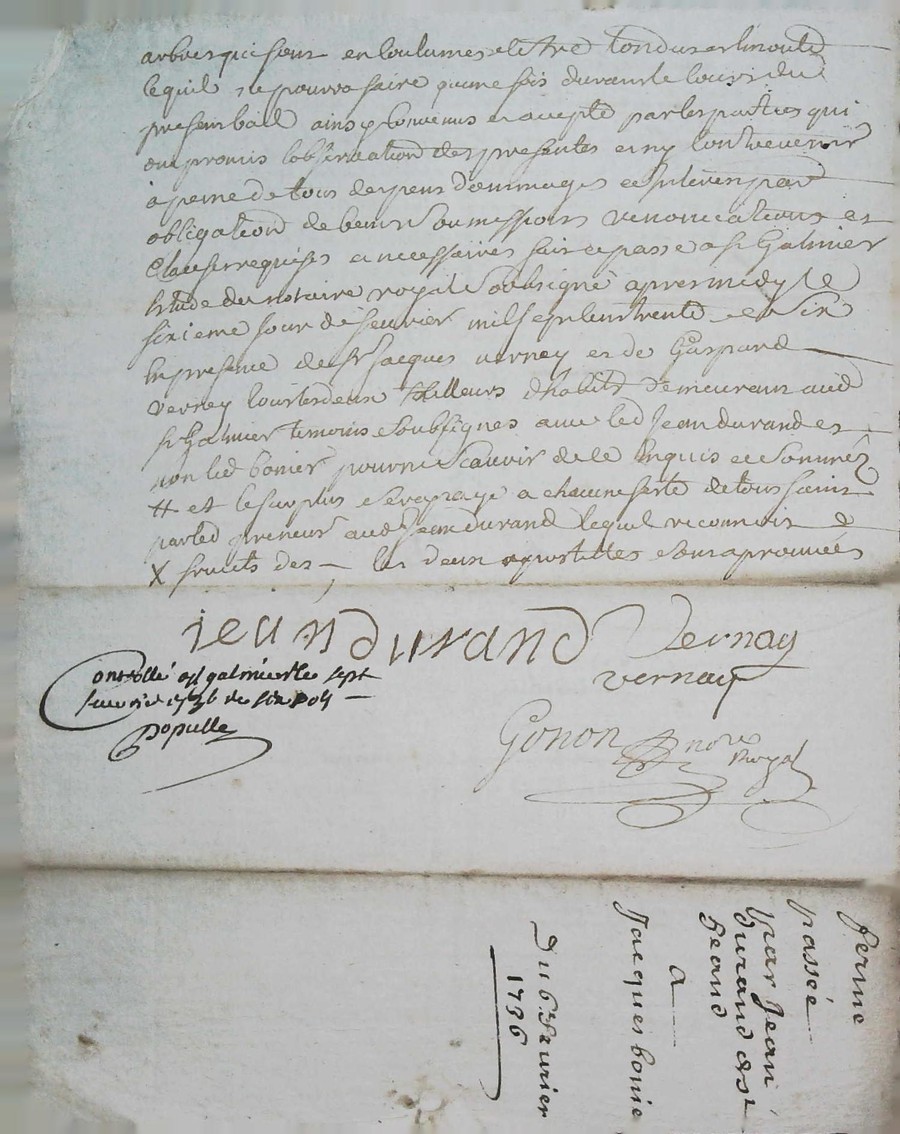 arbres qui sont en coutumes detre tondus et emonde
ce quil ne pourra faire qune fois durant le cours du
present bail ainsy convenus et accepté par les parties qui
ont promis lobservation des presentes et ny contrevenir
a peine de tous depens dommages et interets par
obligation de biens soumissions renonciations et
clauses requises et necessaires fait et passé a st Galmier
Etude du notaire royal soubsigné apres midy le
sixieme jour de feuvrier mil sept cent trente et six
En presence de sr Jacques verney et de Gaspard
verney tous les deux tailleurs dhabits demeurant aud
st Galmier temoins soubsignes avec led Jean durand et
non led bonier pour ne scavoir de ce Enquis et sommes
# et le surplus sera payé a chacune feste de toussaint
par led preneur aud Jean durand lequel reconnoit
X fruits des les deux apostilles sont aprouvées
jean durand Vernay
vernay
Gonon nore
Royal
Controllé a st galmier le sept
feuvrier 1736 reu six sols
Populle
ferme
passée
par Jean
durand de st
Jeand
a
Jacques bonie
Du 6e. feuvrier
1736